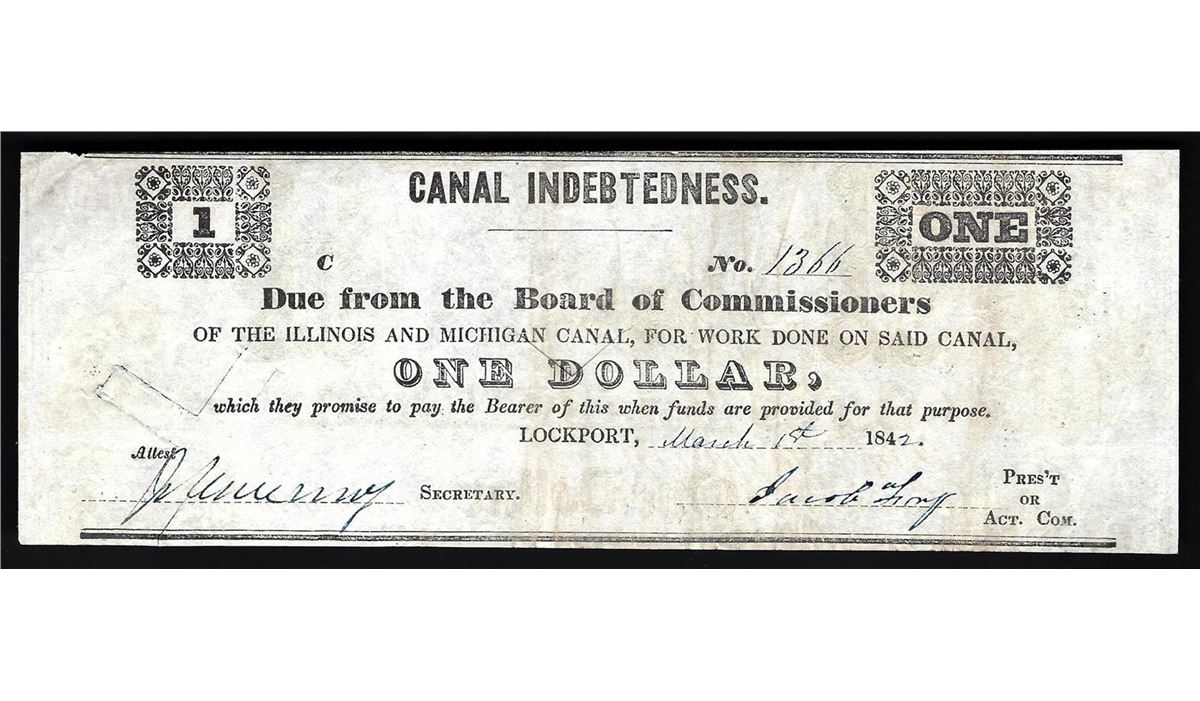 CANAL INDEBTEDNESS.
1
ONE
C No. 1366
Due from the Board of Commissioners
OF THE ILLINOIS AND MICHIGAN CANAL, FOR WORK DONE ON SAID CANAL,
ONE DOLLAR,
which they promise to pay the Bearer of this when funds are provided for that purpose.
LOCKPORT, March 1st 1842.
Attest
SECRETARY.
Jacob Fry
PRES'T
OR
ACT. COM.